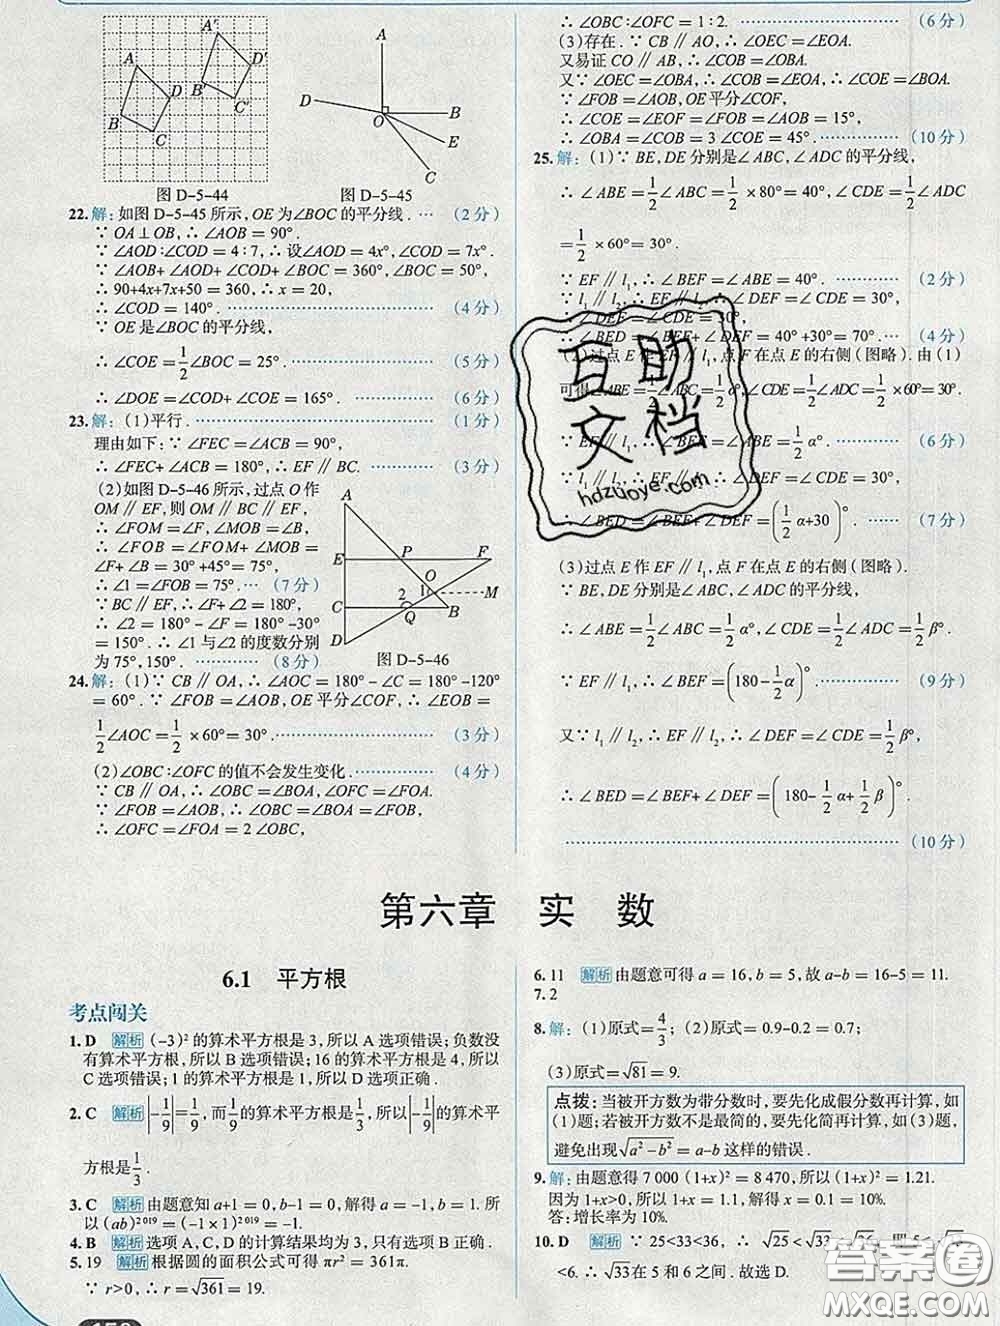 A' A D' D B' C' B C
图 D-5-44
A D B O E C
图 D-5-45
22.解：如图 D-5-45 所示，OE 为∠BOC 的平分线．…（2 分）
∵ OA⊥OB，∴∠AOB＝90°．
∵∠AOD∶∠COD＝4∶7，∴设∠AOD＝4x°，∠COD＝7x°．
∵∠AOB+∠AOD+∠COD+∠BOC＝360°，∠BOC＝50°，
∴90+4x+7x+50＝360，∴x＝20，
∴∠COD＝140°．…………（4 分）
∵OE 是∠BOC 的平分线，
∴∠COE＝1/2∠BOC＝25°．…………（5 分）
∴∠DOE＝∠COD+∠COE＝165°．…………（6 分）
23.解：（1）平行．…………（1 分）
理由如下：∵∠FEC＝∠ACB＝90°，
∴∠FEC+∠ACB＝180°，∴EF∥BC．…………（3 分）
（2）如图 D-5-46 所示，过点 O 作
OM∥EF，则 OM∥BC∥EF，
∴∠FOM＝∠F，∠MOB＝∠B，
∴∠FOB＝∠FOM+∠MOB＝
∠F+∠B＝30°+45°＝75°，
∴∠1＝∠FOB＝75°．…（7 分）
∵BC∥EF，∴∠F+∠2＝180°，
∴∠2＝180°－∠F＝180°-30°
＝150°．∴∠1 与∠2 的度数分别
为 75°，150°．…………（8 分）
A E P F O 1 M 2 C Q B D
图 D-5-46
24.解：（1）∵CB∥OA，∴∠AOC＝180°-∠C＝180°-120°
＝60°．∵∠FOB＝∠AOB，OE 平分∠COF，∴∠EOB＝
1/2∠AOC＝1/2×60°＝30°．…………（3 分）
（2）∠OBC∶∠OFC 的值不会发生变化．…………（4 分）
∵CB∥OA，∴∠OBC＝∠BOA，∠OFC＝∠FOA．
∵∠FOB＝∠AOB，∴∠FOB＝∠OBC，
∴∠OFC＝∠FOA＝2∠OBC，
∴∠OBC∶∠OFC＝1∶2．…………（6 分）
（3）存在．∵CB∥AO，∴∠OEC＝∠EOA．
又易证 CO∥AB，∴∠COB＝∠OBA．
又∵∠OEC＝∠OBA，∴∠COB＝∠EOA，∴∠COE＝∠BOA．
∵∠FOB＝∠AOB，OE平分∠COF，
∴∠COE＝∠EOF＝∠FOB＝∠AOB＝15°，
∴∠OBA＝∠COB＝3∠COE＝45°．…………（10 分）
25.解：（1）∵BE，DE 分别是∠ABC，∠ADC 的平分线，
∴∠ABE＝1/2∠ABC＝1/2×80°＝40°，∠CDE＝1/2∠ADC
＝1/2×60°＝30°．
∵EF∥l₁，∴∠BEF＝∠ABE＝40°．…………（2 分）
∵l₁∥l₂，∴EF∥l₂，∴∠DEF＝∠CDE＝30°，
∴∠BED＝∠BEF+∠DEF＝40°+30°＝70°．…（4 分）
（2）过点 E 作 EF∥l₁，点 F 在点 E 的右侧（图略）．由（1）
可得∠ABE＝1/2∠ABC＝1/2α°，∠CDE＝1/2∠ADC＝1/2×60°＝30°．
∵EF∥l₁，∴∠BEF＝∠ABE＝1/2α°．…………（6 分）
∵l₁∥l₂，∴EF∥l₂，∴∠DEF＝∠CDE＝30°，
∴∠BED＝∠BEF+∠DEF＝(1/2α+30)°．……（7 分）
（3）过点 E 作 EF∥l₁，点 F 在点 E 的右侧（图略）．
∵BE，DE 分别是∠ABC，∠ADC 的平分线，
∴∠ABE＝1/2∠ABC＝1/2α°，∠CDE＝1/2∠ADC＝1/2β°．
∵EF∥l₁，∴∠BEF＝(180－1/2α)°．…………（9 分）
又∵l₁∥l₂，∴EF∥l₂，∴∠DEF＝∠CDE＝1/2β°，
∴∠BED＝∠BEF+∠DEF＝(180－1/2α+1/2β)°．
…………（10 分）
互助文档
hdzuoye.com
第六章 实 数
6.1 平方根
考点闯关
1.D 解析 （-3）²的算术平方根是 3，所以 A 选项错误；负数没
有算术平方根，所以 B 选项错误；16 的算术平方根是 4，所以
C 选项错误；1 的算术平方根是 1，所以 D 选项正确．
2.C 解析 |-1/9|＝1/9，而1/9的算术平方根是1/3，所以|-1/9|的算术平
方根是1/3．
3.C 解析 由题意知 a+1＝0，b-1＝0，解得 a＝-1，b＝1．所
以（ab）²⁰¹⁹＝（-1×1）²⁰¹⁹＝-1．
4.B 解析 选项 A，C，D 的计算结果均为 3，只有选项 D 错误．
5.19 解析 根据圆的面积公式可得 πr²＝361π．
∵r>0，∴r＝√361＝19．
6.11 解析 由题意可得 a＝16，b＝5，故 a-b＝16-5＝11．
7.2
8.解：（1）原式＝4/3；（2）原式＝0.9-0.2＝0.7；
（3）原式＝√81＝9．
点拨：当被开方数为带分数时，要先化成假分数再计算，如
（1）题；若被开方数不是最简的，要先化简再计算，如（3）题，
避免出现√(a²－b²)＝a-b 这样的错误．
9.解：由题意得 7 000（1+x）²＝8 470，所以（1+x）²＝1.21．
因为 1+x>0，所以 1+x＝1.1，解得 x＝0.1＝10%．
答：增长率为 10%．
10.D 解析 ∵25<33<36，∴√25<√33<√36，即 5<√33
<6．∴√33在 5 和 6 之间．故选 D．
答案圈
MXQE.COM